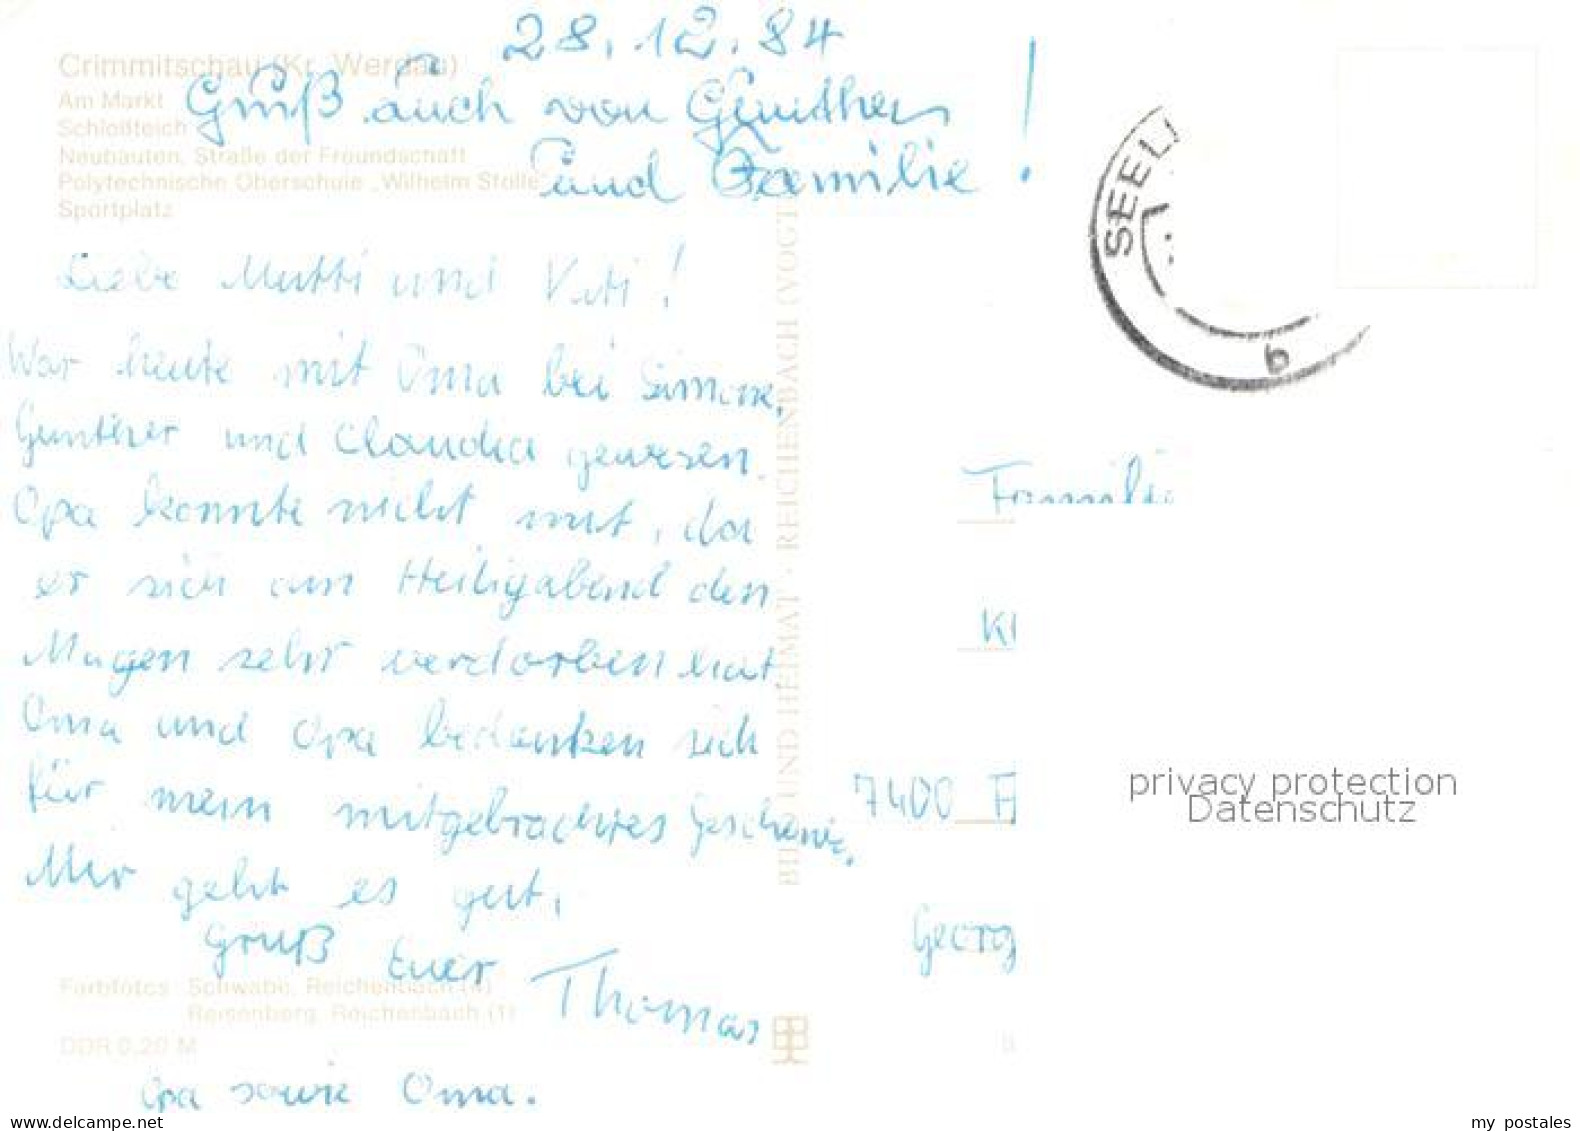 28.12.84
Crimmitschau (Kr. Werdau)
Am Markt
Schloßteich
Neubauten, Straße der Freundschaft
Polytechnische Oberschule „Wilhelm Stolle"
Sportplatz
Gruß auch von Günther
und Familie !
Liebe Mutti und Vati!
War heute mit Oma bei Simone,
Günther und Claudia gewesen.
Opa konnte nicht mit, da
er sich am Heiligabend den
Magen sehr verdorben hat.
Oma und Opa bedanken sich
für mein mitgebrachtes Geschenk.
Mir geht es gut.
Gruß Euer Thomas
Opa sowie Oma.
Farbfotos: Schwabe, Reichenbach (4)
Reisenberg, Reichenbach (1)
DDR 0,20 M
BILD UND HEIMAT · REICHENBACH (VOGTL
SEEL
b
Familie
Kl
7400
Georg
privacy protection
Datenschutz
www.delcampe.net
my postales